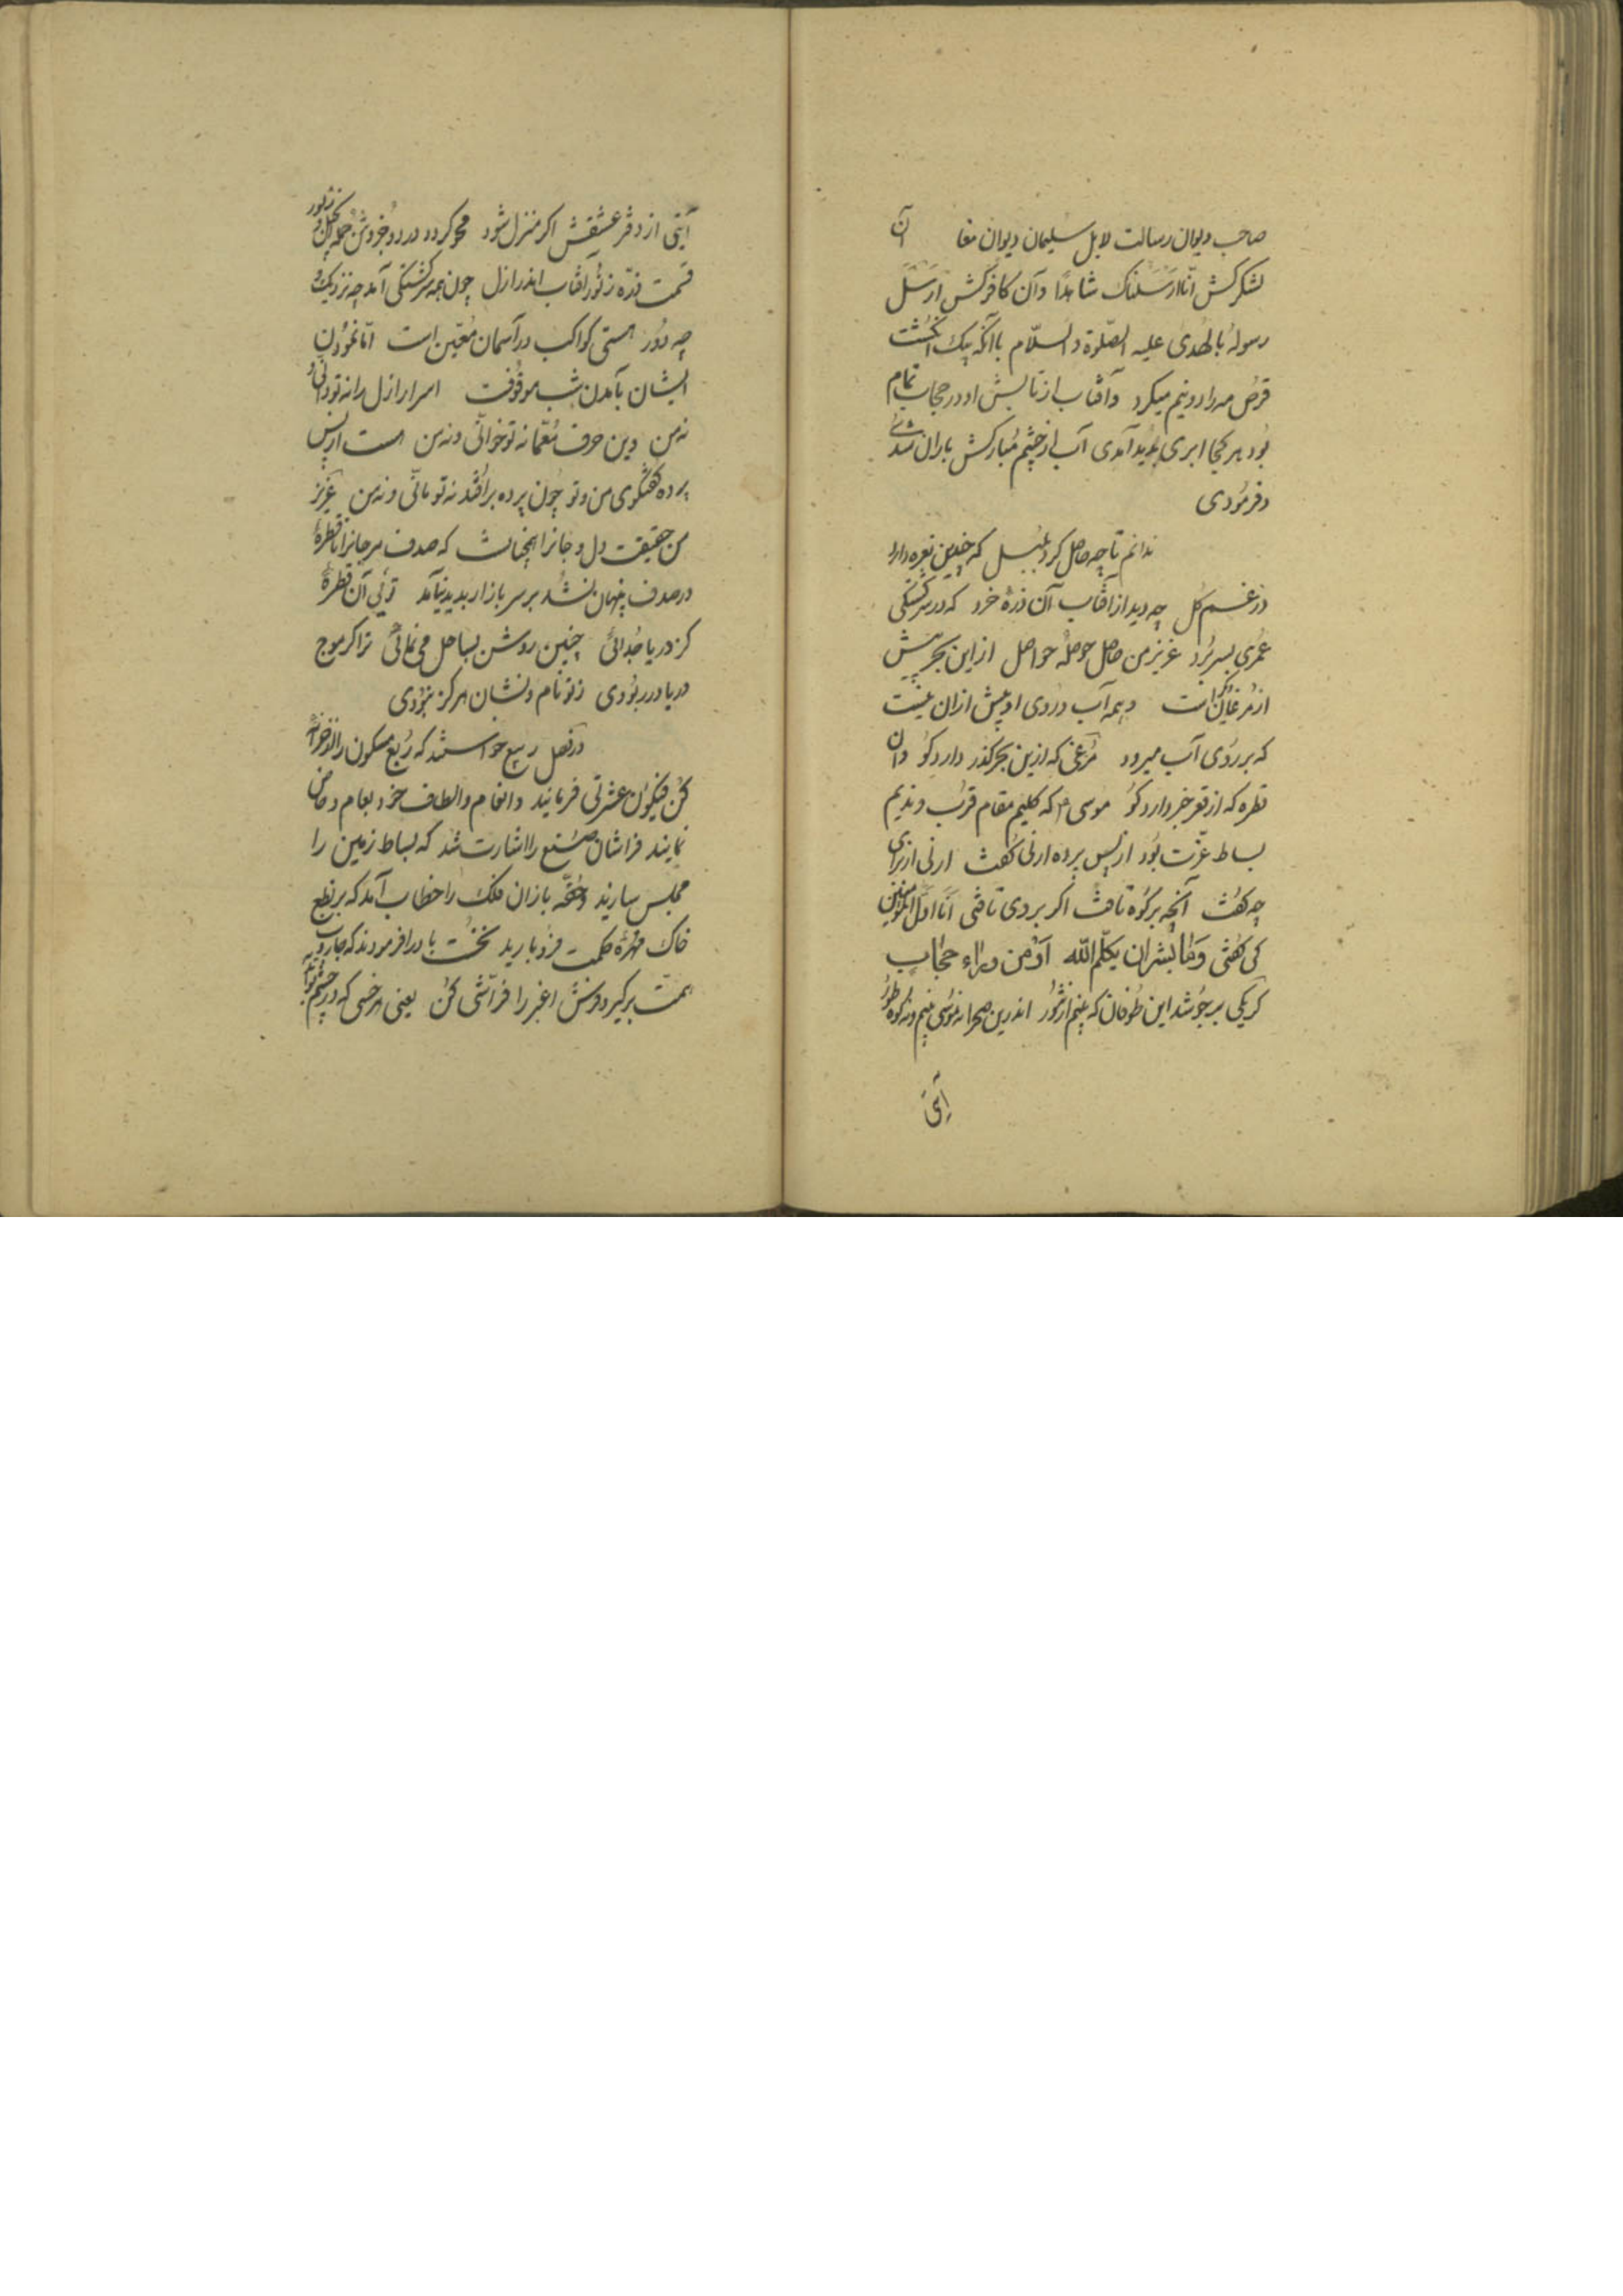 صاحب دیوان رسالت لابل سلیمان دیوان مقا آن
لشکرکش انّا ارسلناک شاهدًا وآن کافرکش ارسل
رسوله بالهدی علیه الصلوة والسلام باآنکه بیک انکشت
قرص مه را دو نیم میکرد وآفتاب از تابش او در حجاب تمام
بود هر کجا ابری پدید آمدی آب از چشم مبارکش باران شدی
وفرمودی
ندانم تا چه حاصل کرد بلبل که چندین نعره دارد
در غم کل چه دید از آفتاب آن ذرهٔ خرد که در سرکشتکی
عمری بسر برد عزیز من حاصل حوصلهٔ حواصل ازاین بحر بیش
از مرغان است وهمه آب در وی او بیش ازان نیست
که بر روی آب میرود مرغی که ازین بحر کذر دارد کو وآن
قطره که از قعر خبر دارد کو موسی که کلیم مقام قرب وندیم
بساط عزت بود از پس پرده ارنی کفت ارنی از برای
چه کفت آنچه بر کوه تافت اکر بر وی تافتی انا اول المومنین
کی کفتی وما لبشر ان یکلمه الله اومن وراء حجاب
کریکی بر جوشد این طوفان که بینم از تنور اندرین صحرا نه موسی بینم ونه کوه طور
آیتی
آیتی از دفتر عشقش اکر منزل شود محو کردد در دو جزوش جمله انجیل و زبور
قسمت ذره ز نور آفتاب اندر ازل چون همه سرکشتکی آمد چه نزدیک و
چه دور هستی کواکب در آسمان معین است اما نمودن
ایشان بآمدن شب موقوفست اسرار ازل را نه تو دانی و
نه من وین حرف معما نه تو خوانی ونه من هست از پس
پرده کفتکوی من وتو چون پرده برافتد نه تو مانی ونه من عزیز
من حقیقت دل وجانرا همچنانست که صدف مرجانرا تا قطرهٔ
در صدف پنهان نشد بر سر بازار پدید نیامد توئی آن قطرهٔ
کز دریا جدائی چنین روشن بساحل می نمائی ترا کر موج
دریا در ربودی ز تو نام ونشان هرکز نبودی
در فصل ربیع خواستند که ربع مسکون را از خزانهٔ
کن فیکون عشرتی فرمایند وانعام والطاف خود بعام وخاص
نمایند فراشان صنع را اشارت شد که بساط زمین را
مجلس سازند وحقه بازان فلک را خطاب آمد که بر نطع
خاک مهرهٔ حکمت فرو بارید نخست باد را فرمودند که جاروب
همت برکیر وفرش اغبر را فراشی کن یعنی هر خسی که در چشم تو آید